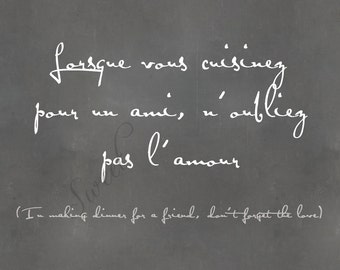 Lorsque vous cuisinez
pour un ami, n'oubliez
pas l'amour
(In making dinner for a friend, don't forget the love)